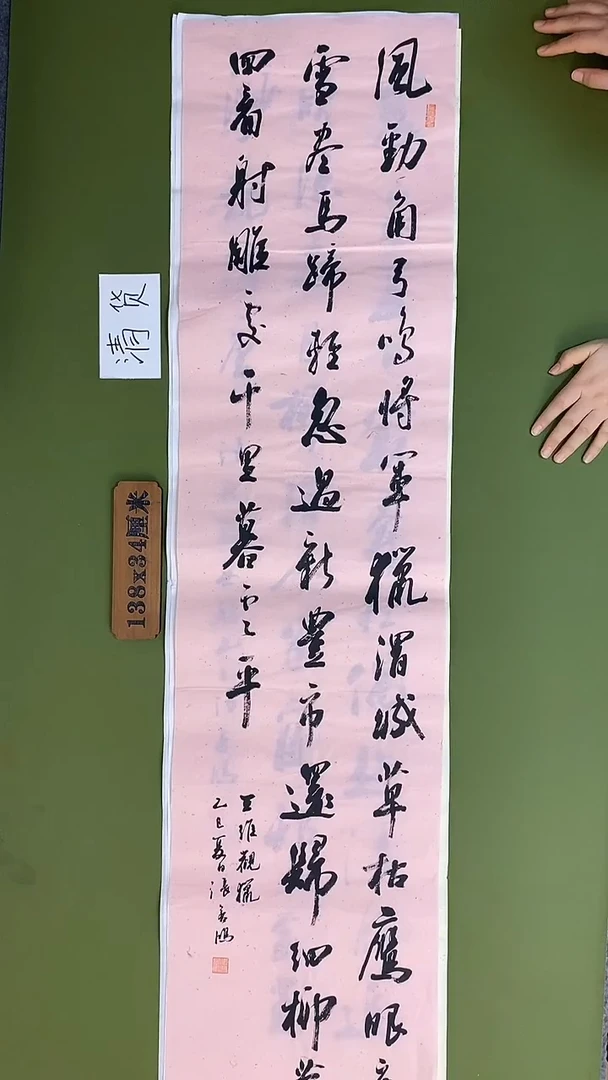 風勁角弓鳴將軍獵渭城草枯鷹眼
雪盡馬蹄輕忽過新豐市還歸細柳
回看射雕處千里暮云平
王維觀獵
乙巳夏日張
清货
138x34厘米